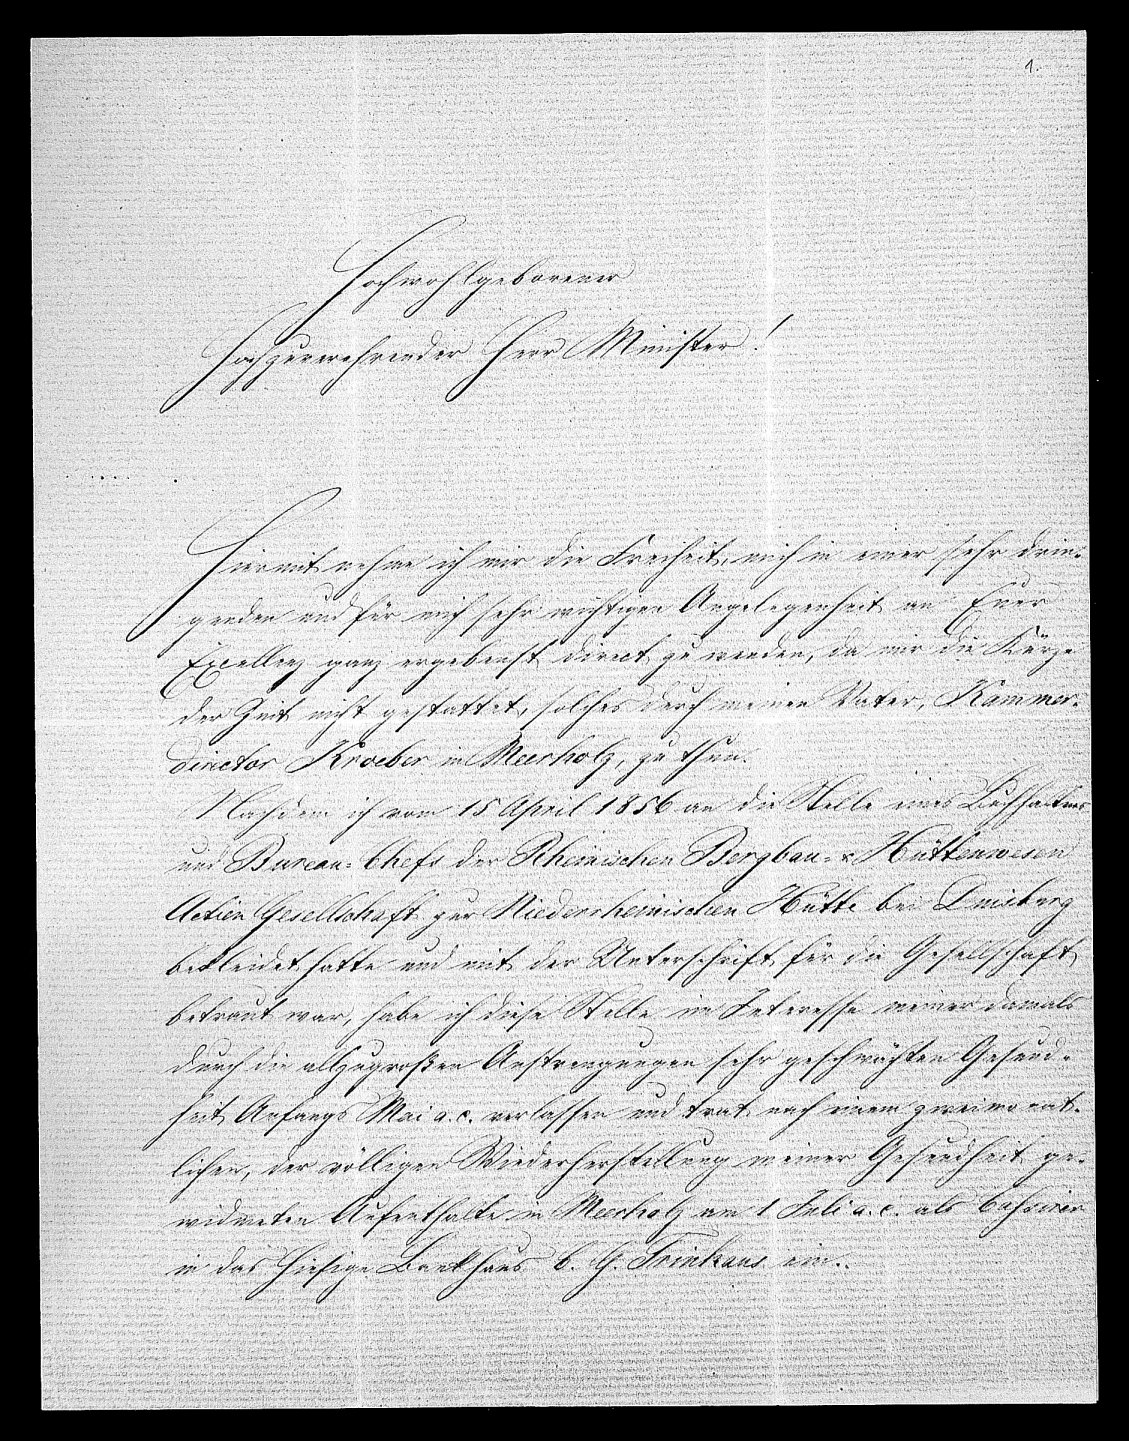 1.
Hochwohlgeborener
Hochzuverehrender Herr Minister!
Hiermit nehme ich mir die Freiheit, mich in einer sehr drin-
genden und für mich sehr wichtigen Angelegenheit an Euer
Excellenz ganz ergebenst direct zu wenden, da mir die Kürze
der Zeit nicht gestattet, solches durch meinen Vater, Kammer-
director Kroeber in Meerholz, zu thun.
Nachdem ich vom 15 April 1856 an die Stelle eines Buchhalters
und Bureau-Chefs der Rheinischen Bergbau- & Hüttenwesen
Actien Gesellschaft zur Niederrheinischen Hütte bei Duisburg
bekleidet hatte und mit der Unterschrift für die Gesellschaft
betraut war, habe ich diese Stelle im Interesse meiner damals
durch die allzugroßen Anstrengungen sehr geschwächten Gesund-
heit Anfangs Mai a. c. verlassen und trat nach einem zweimonat-
lichen, der völligen Wiederherstellung meiner Gesundheit ge-
widmeten Aufenthalte in Meerholz am 1 Juli a. c. als Cassirer
in das hiesige Bankhaus C. G. Trinkaus ein.